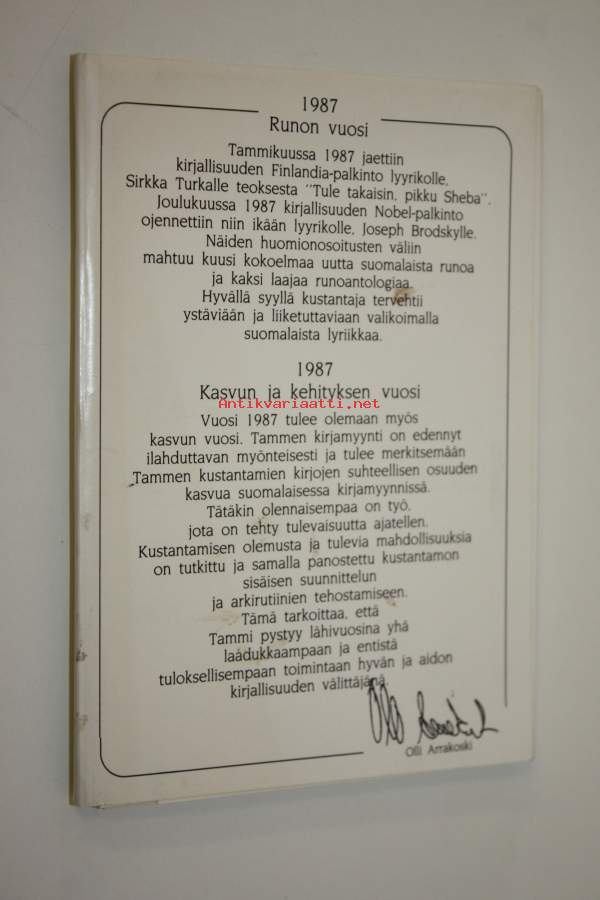 1987
Runon vuosi
Tammikuussa 1987 jaettiin
kirjallisuuden Finlandia-palkinto lyyrikolle,
Sirkka Turkalle teoksesta "Tule takaisin, pikku Sheba".
Joulukuussa 1987 kirjallisuuden Nobel-palkinto
ojennettiin niin ikään lyyrikolle, Joseph Brodskylle.
Näiden huomionosoitusten väliin
mahtuu kuusi kokoelmaa uutta suomalaista runoa
ja kaksi laajaa runoantologiaa.
Hyvällä syyllä kustantaja tervehtii
ystäviään ja liiketuttaviaan valikoimalla
suomalaista lyriikkaa.
1987
Kasvun ja kehityksen vuosi
Antikvariaatti.net
Vuosi 1987 tulee olemaan myös
kasvun vuosi. Tammen kirjamyynti on edennyt
ilahduttavan myönteisesti ja tulee merkitsemään
Tammen kustantamien kirjojen suhteellisen osuuden
kasvua suomalaisessa kirjamyynnissä.
Tätäkin olennaisempaa on työ,
jota on tehty tulevaisuutta ajatellen.
Kustantamisen olemusta ja tulevia mahdollisuuksia
on tutkittu ja samalla panostettu kustantamon
sisäisen suunnittelun
ja arkirutiinien tehostamiseen.
Tämä tarkoittaa, että
Tammi pystyy lähivuosina yhä
laadukkaampaan ja entistä
tuloksellisempaan toimintaan hyvän ja aidon
kirjallisuuden välittäjänä.
Olli Arrakoski